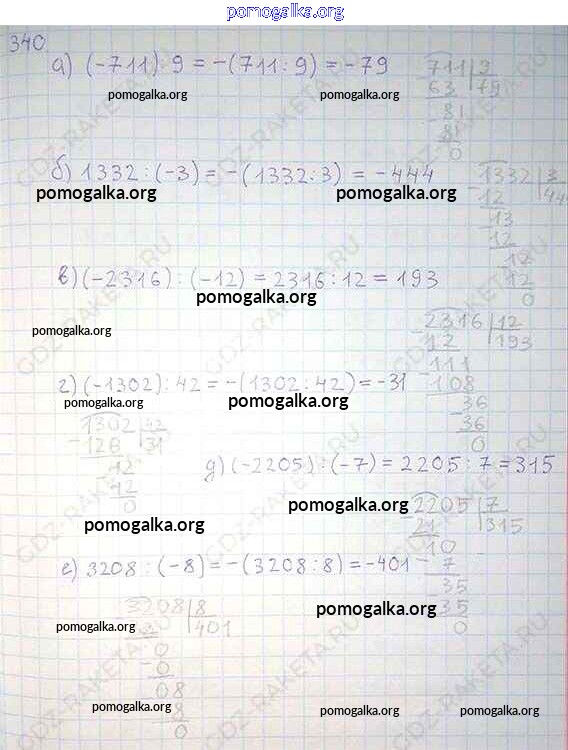 pomogalka.org
340.
а) (-711) : 9 = -(711 : 9) = -79
711 9
63 79
-81
81
0
pomogalka.org pomogalka.org
б) 1332 : (-3) = -(1332 : 3) = -444
-1332 3
12 444
-13
12
-12
12
0
pomogalka.org pomogalka.org
в) (-2316) : (-12) = 2316 : 12 = 193
pomogalka.org
pomogalka.org
-2316 12
12 193
-111
108
-36
36
0
г) (-1302) : 42 = -(1302 : 42) = -31
pomogalka.org pomogalka.org
-1302 42
126 31
-42
42
0
д) (-2205) : (-7) = 2205 : 7 = 315
pomogalka.org
pomogalka.org
-2205 7
21 315
10
-7
-35
35
0
е) 3208 : (-8) = -(3208 : 8) = -401
-3208 8
401
0
-0
08
-8
0
pomogalka.org
pomogalka.org
pomogalka.org
pomogalka.org pomogalka.org
GDZ-RAKETA.RU